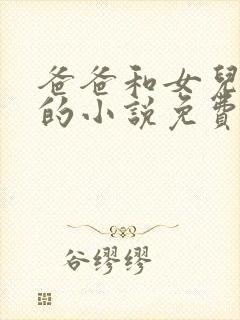 爸爸和女兒
的小說免費
谷缪缪